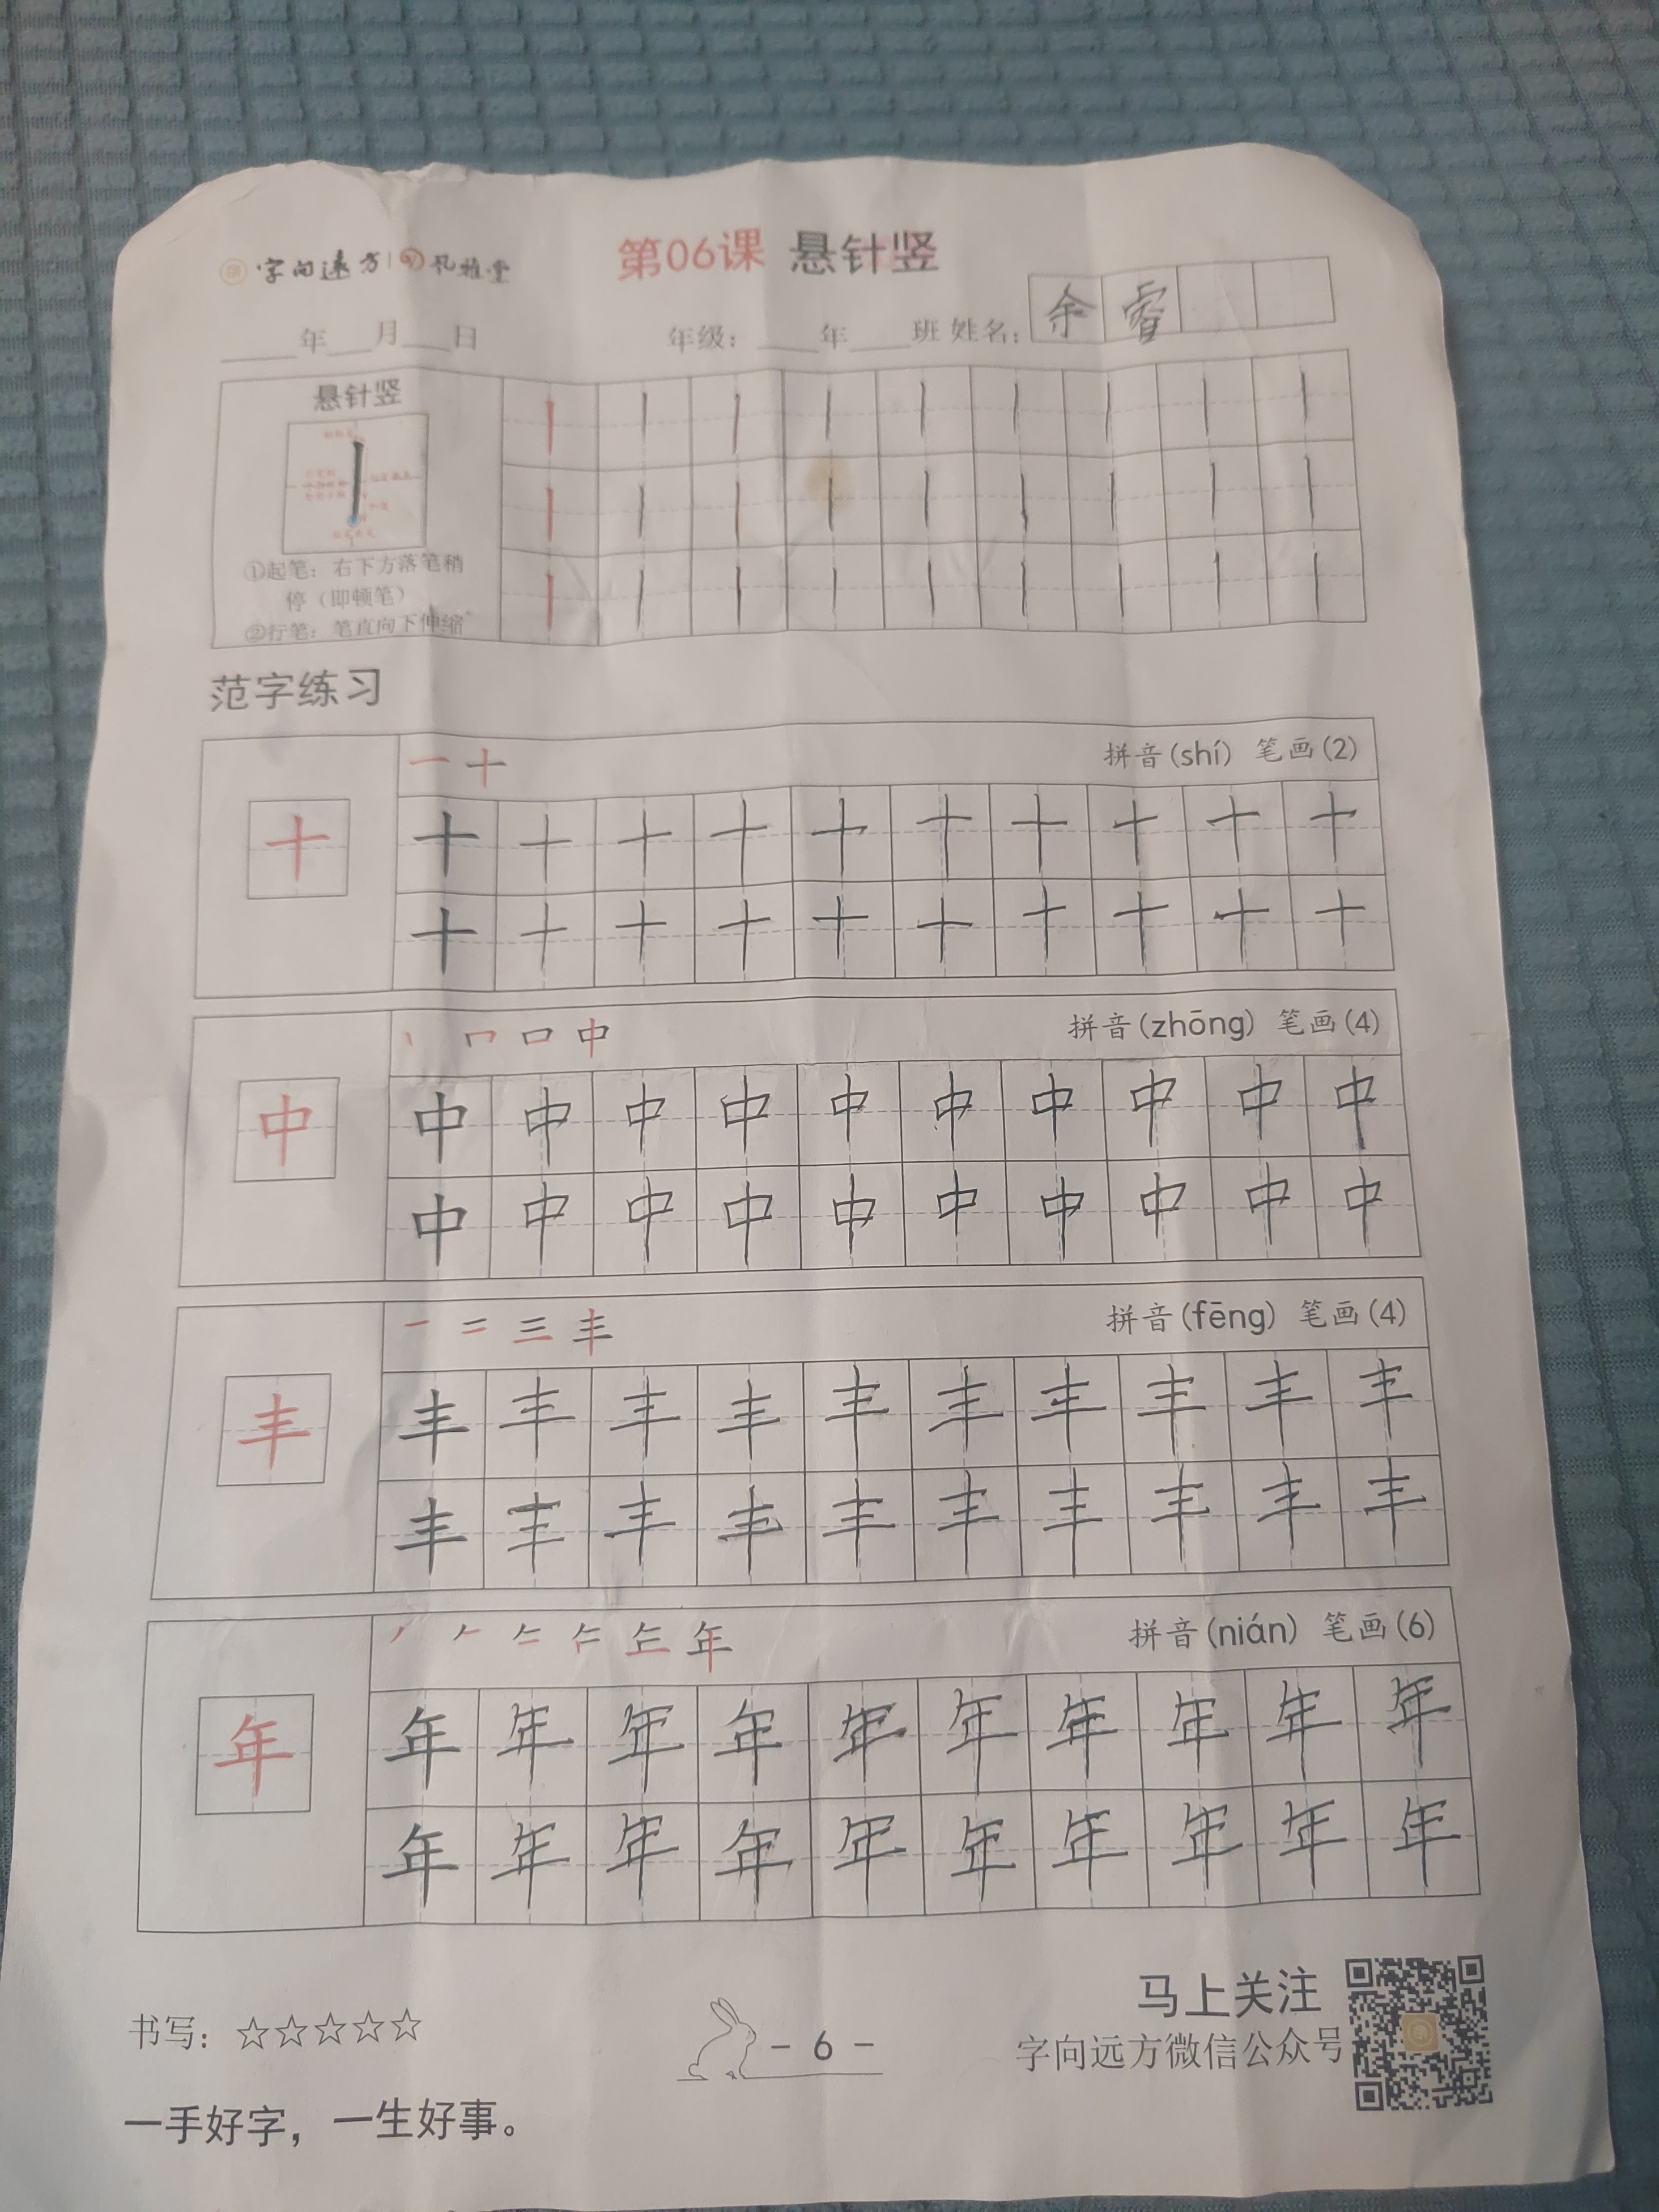 字向远方 孔雅堂
第06课 悬针竖
年 月 日 年级： 年 班 姓名： 余 睿
悬针竖
①起笔：右下方落笔稍
停（即顿笔）
②行笔：笔直向下伸缩
范字练习
一 十 拼音(shí) 笔画(2)
十 十 十 十 十 十 十 十 十 十 十
十 十 十 十 十 十 十 十 十 十
丨 口 中 拼音(zhōng) 笔画(4)
中 中 中 中 中 中 中 中 中 中 中
中 中 中 中 中 中 中 中 中 中
一 二 三 丰 拼音(fēng) 笔画(4)
丰 丰 丰 丰 丰 丰 丰 丰 丰 丰 丰
丰 丰 丰 丰 丰 丰 丰 丰 丰 丰
年 拼音(nián) 笔画(6)
年 年 年 年 年 年 年 年 年 年 年
年 年 年 年 年 年 年 年 年 年
书写：☆☆☆☆☆
- 6 -
马上关注
字向远方微信公众号
一手好字，一生好事。